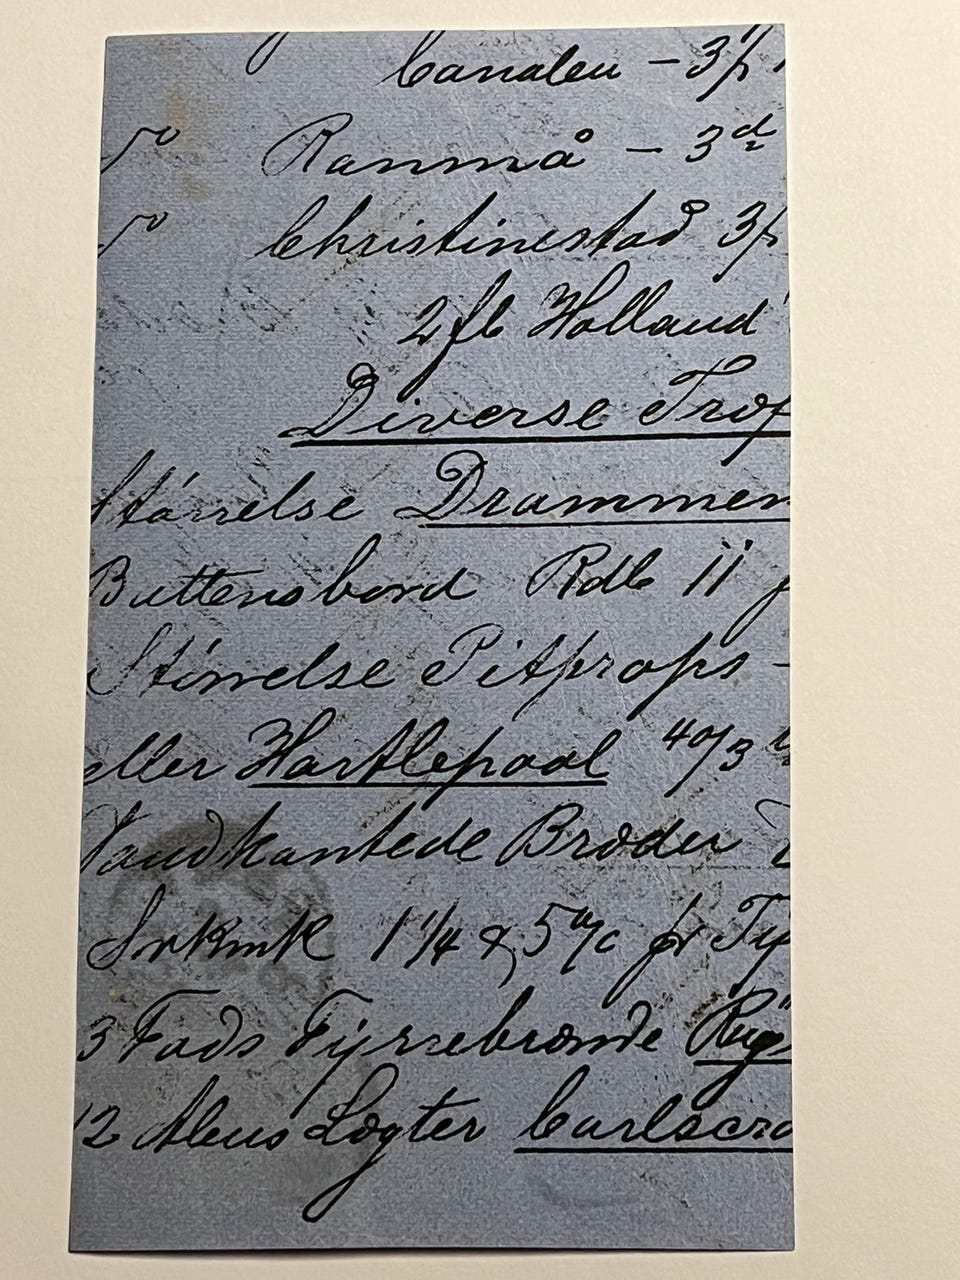 Canalen - 3/
do Ranmå - 3d
do Christinestad 3/
2 fl Holland
Diverse
Størrelse Drammen
Buttensbord Rdl 11
Størrelse Pitprops -
eller Hartlepool 40/3
Vandkantede Brædder
1 1/4 & 5 % pr
3 Fads Fyrrebrænde
12 Alens Lægter Carlscro